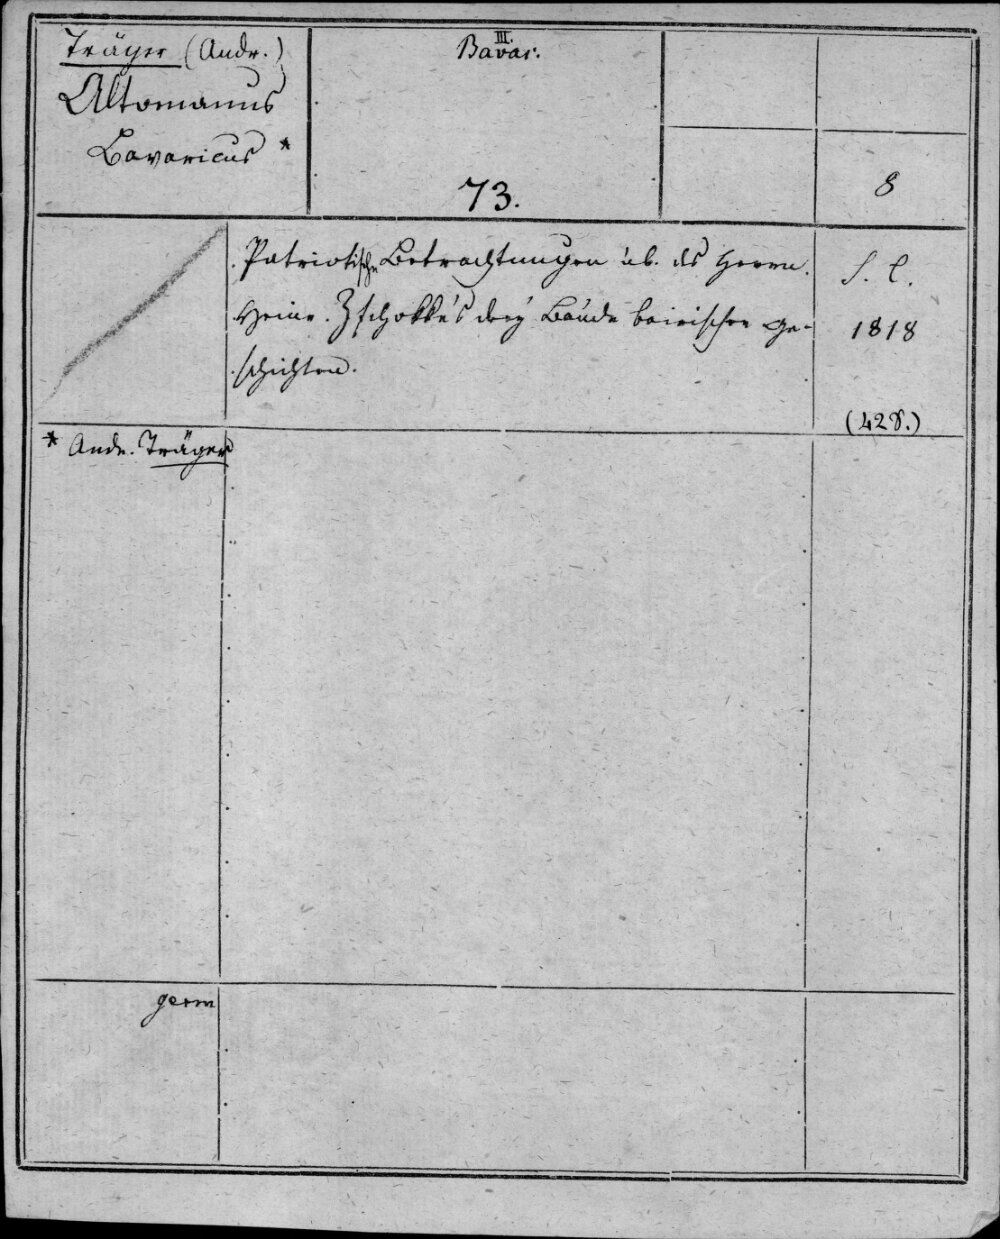 Träger (Andr.)
Altomannus
Bavaricus *
III.
Bavar.
73.
8
Patriotische Betrachtungen üb. des Herrn
Heinr. Zschokke's drey Bände bairischer Ge-
schichten.
S. l.
1818
(428.)
* Andr. Träger
germ